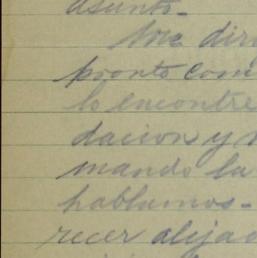 asunto.
Me dir
pronto com
lo encontre
dacion y
mando la
hablamos.
recer alejad